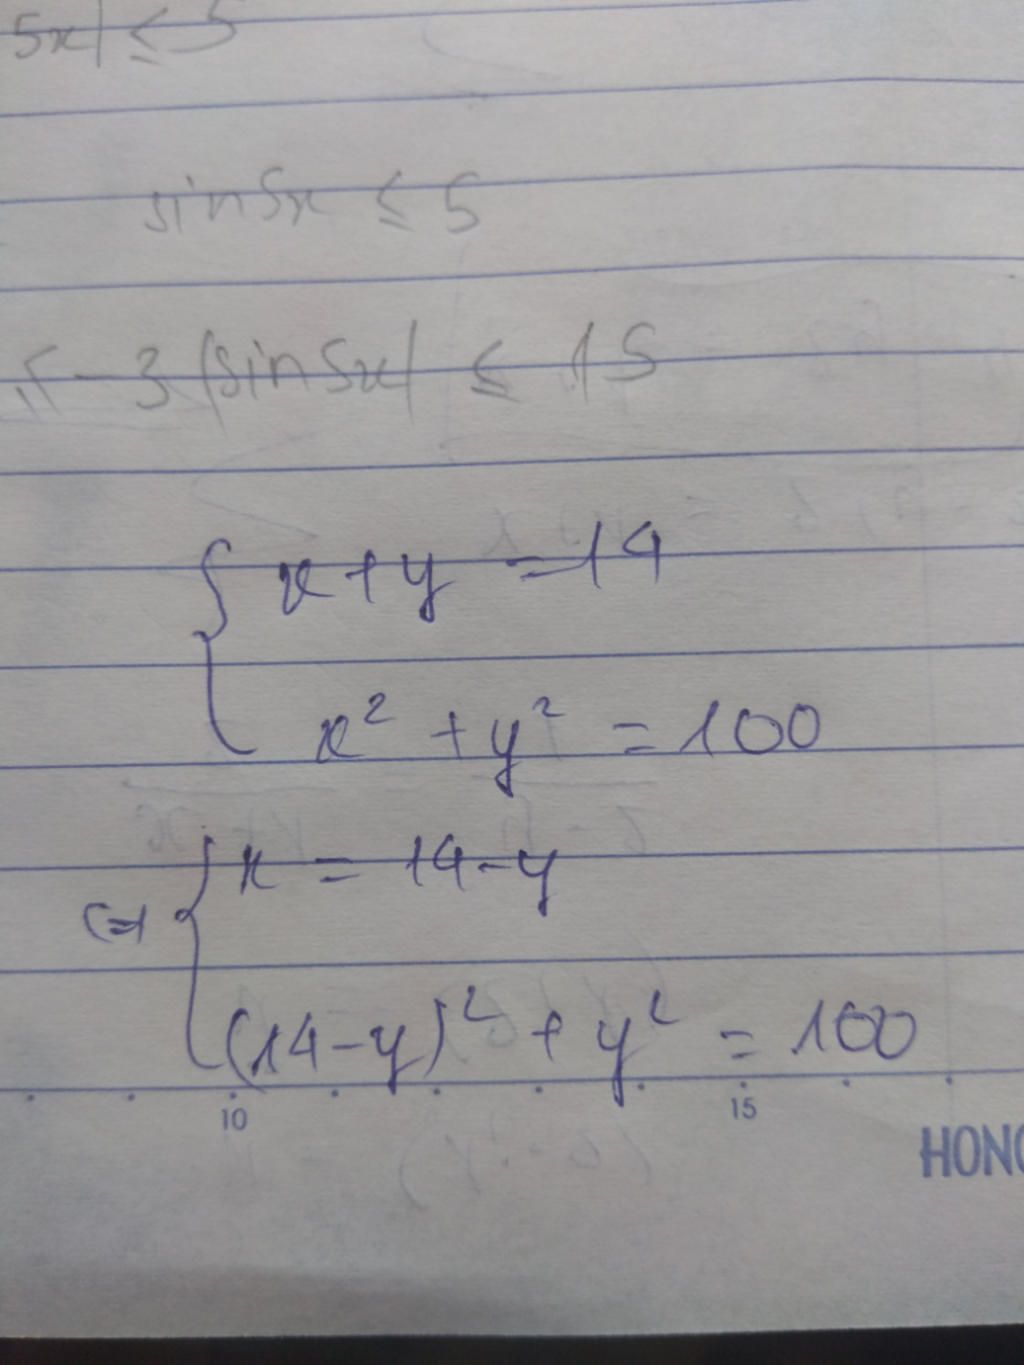 5x| ≤ 5
sin5x ≤ 5
- 3 |sin5x| ≤ 15
{ x + y = 14
x² + y² = 100
(=) { x = 14 - y
(14 - y)² + y² = 100
10 15
HONG